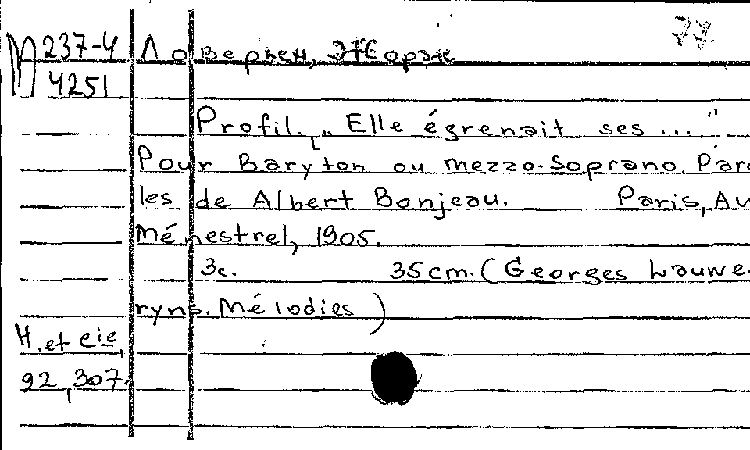 М 237-4 Ловерсен, Жорж 77
4251
Profil. „Elle égrenait ses ..."
Pour Baryton ou mezzo-soprano. Paro
les de Albert Bonjeau. Paris, Au
Ménestrel, 1905.
3c. 35 cm. (Georges Lauwe-
ryns. Mélodies)
H. et cie,
92,307.